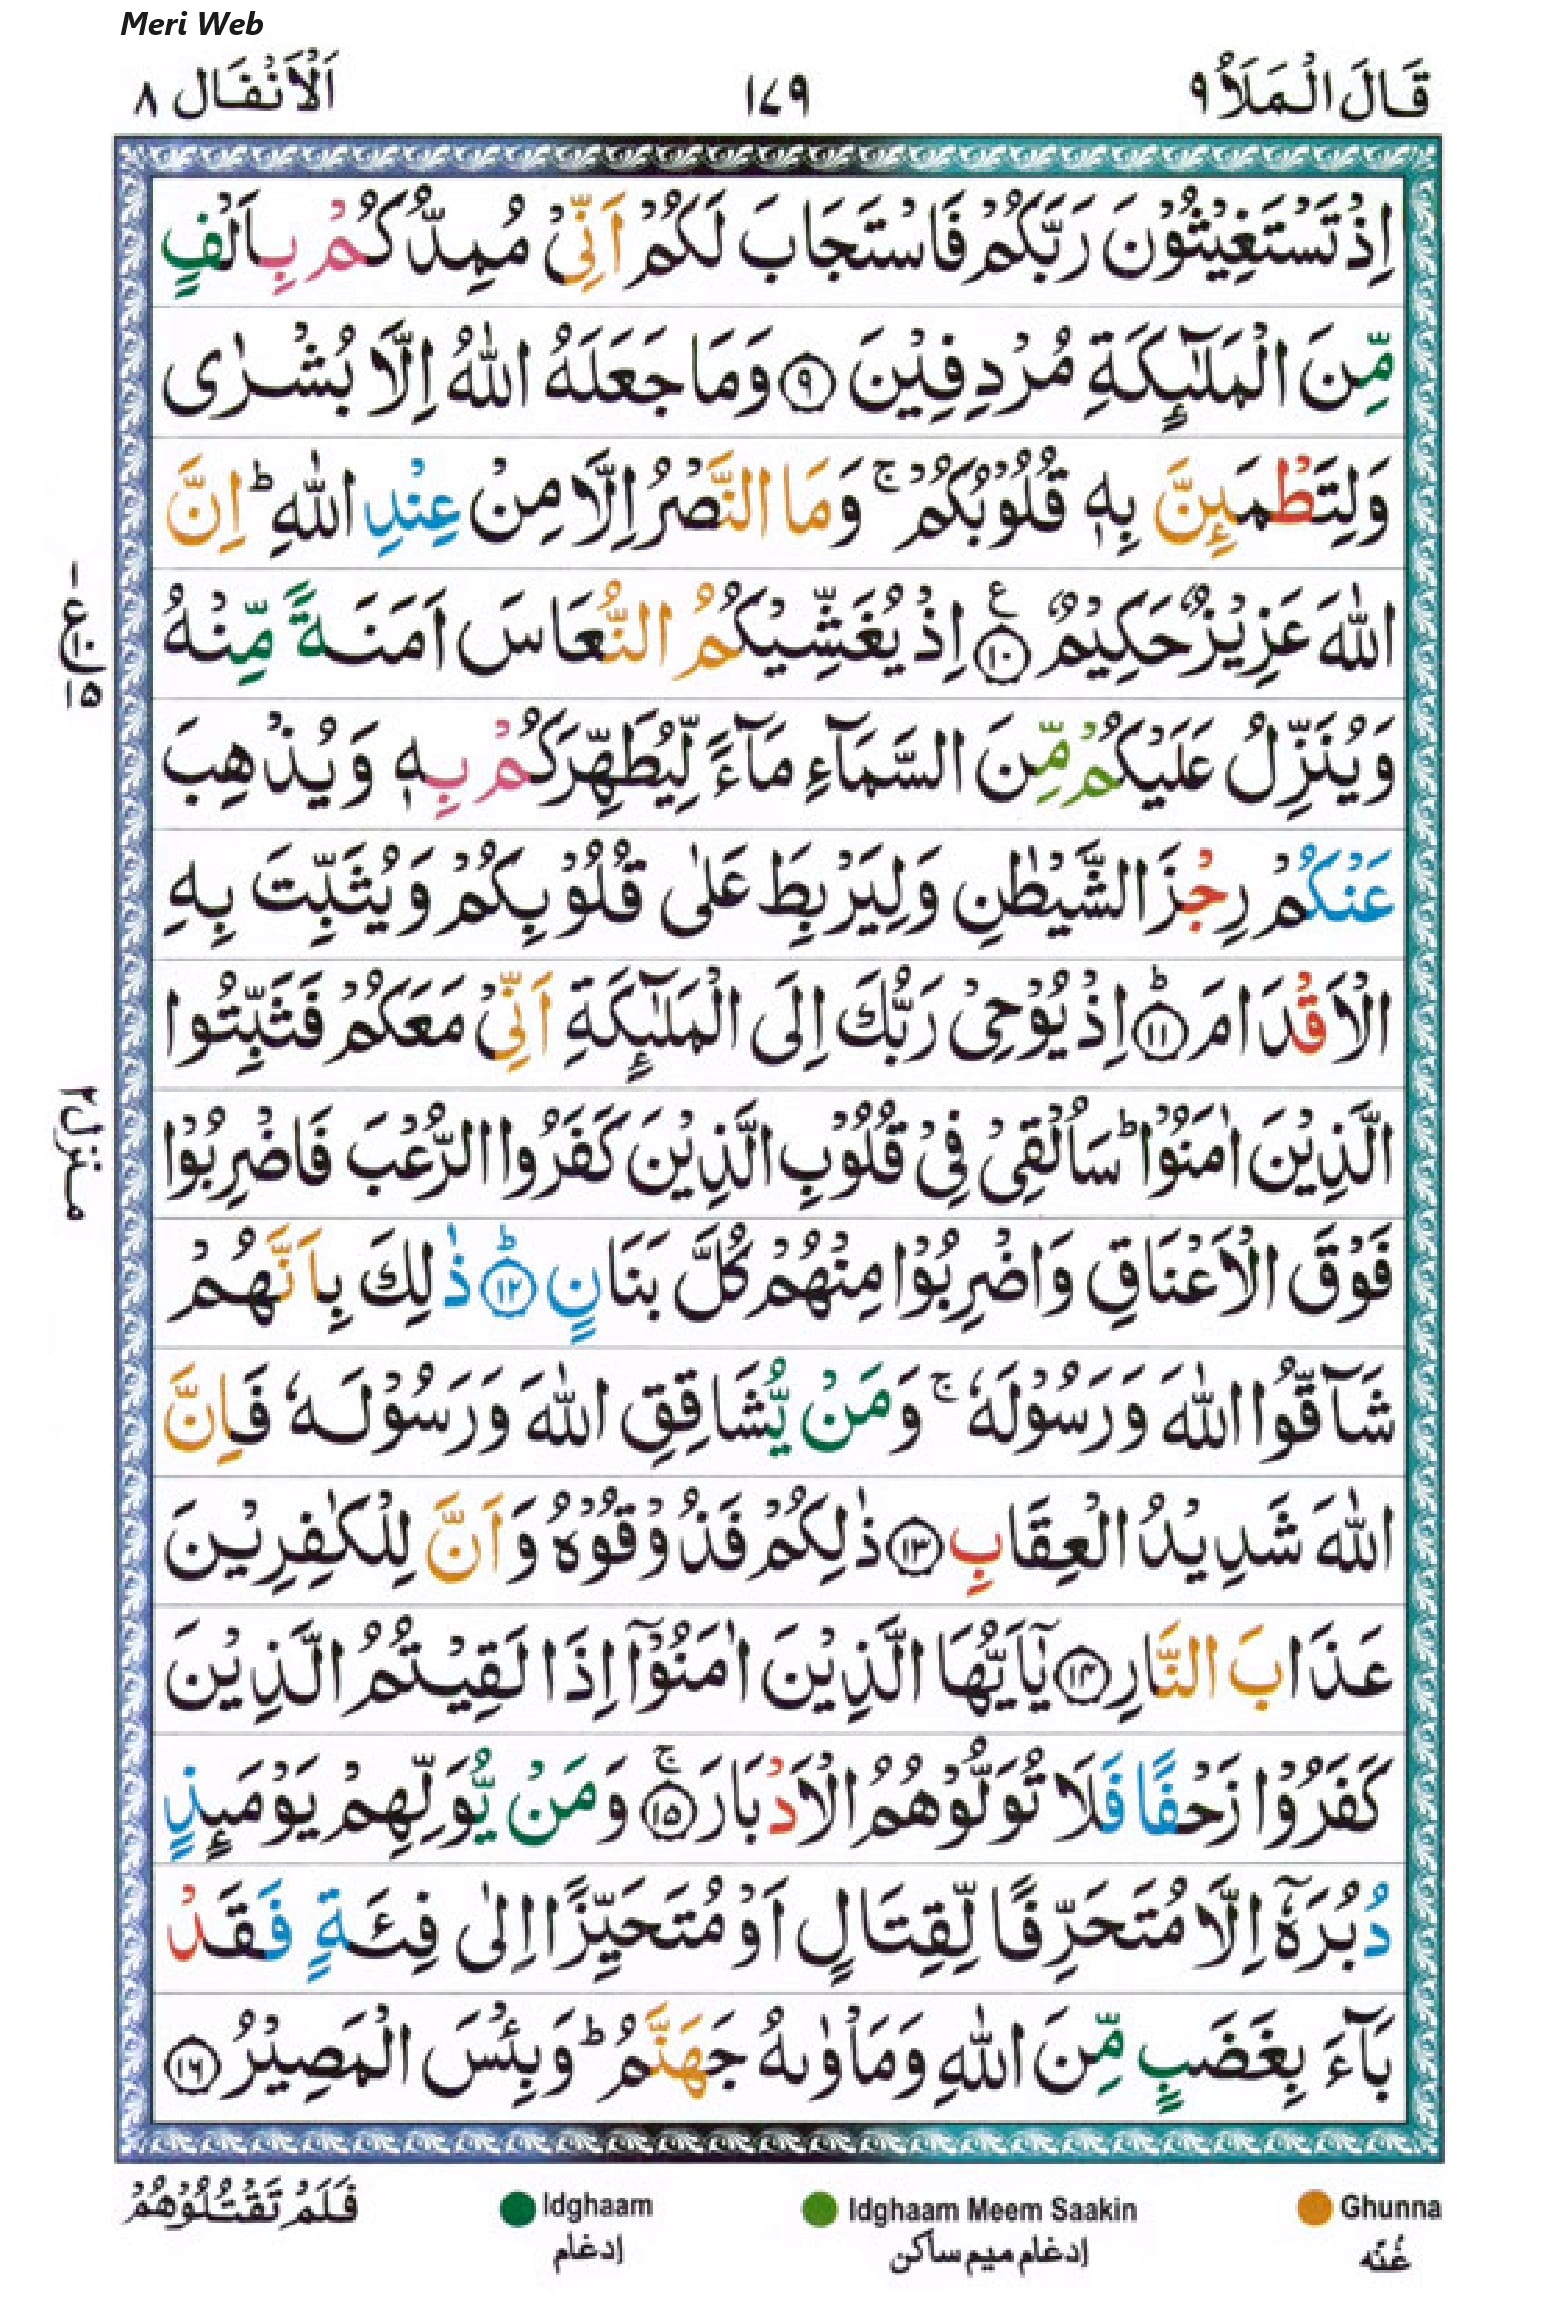 Meri Web
قَالَ الْمَلَاُ ٩
١٧٩
اَلْاَنْفَال ٨
اِذْ تَسْتَغِيْثُوْنَ رَبَّكُمْ فَاسْتَجَابَ لَكُمْ اَنِّيْ مُمِدُّكُمْ بِاَلْفٍ
مِّنَ الْمَلٰٓىِٕكَةِ مُرْدِفِيْنَ ۹ وَمَا جَعَلَهُ اللّٰهُ اِلَّا بُشْرٰى
وَلِتَطْمَىِٕنَّ بِهٖ قُلُوْبُكُمْ ۚ وَمَا النَّصْرُ اِلَّا مِنْ عِنْدِ اللّٰهِ ؕ اِنَّ
اللّٰهَ عَزِيْزٌ حَكِيْمٌ ۱۰ اِذْ يُغَشِّيْكُمُ النُّعَاسَ اَمَنَةً مِّنْهُ
وَيُنَزِّلُ عَلَيْكُمْ مِّنَ السَّمَآءِ مَآءً لِّيُطَهِّرَكُمْ بِهٖ وَيُذْهِبَ
عَنْكُمْ رِجْزَ الشَّيْطٰنِ وَلِيَرْبِطَ عَلٰى قُلُوْبِكُمْ وَيُثَبِّتَ بِهِ
الْاَقْدَامَ ؕ ۱۱ اِذْ يُوْحِيْ رَبُّكَ اِلَى الْمَلٰٓىِٕكَةِ اَنِّيْ مَعَكُمْ فَثَبِّتُوا
الَّذِيْنَ اٰمَنُوْا ؕ سَاُلْقِيْ فِيْ قُلُوْبِ الَّذِيْنَ كَفَرُوا الرُّعْبَ فَاضْرِبُوْا
فَوْقَ الْاَعْنَاقِ وَاضْرِبُوْا مِنْهُمْ كُلَّ بَنَانٍ ؕ ۱۲ ذٰلِكَ بِاَنَّهُمْ
شَآقُّوا اللّٰهَ وَرَسُوْلَهٗ ۚ وَمَنْ يُّشَاقِقِ اللّٰهَ وَرَسُوْلَهٗ فَاِنَّ
اللّٰهَ شَدِيْدُ الْعِقَابِ ۱۳ ذٰلِكُمْ فَذُوْقُوْهُ وَاَنَّ لِلْكٰفِرِيْنَ
عَذَابَ النَّارِ ۱۴ يٰٓاَيُّهَا الَّذِيْنَ اٰمَنُوْٓا اِذَا لَقِيْتُمُ الَّذِيْنَ
كَفَرُوْا زَحْفًا فَلَا تُوَلُّوْهُمُ الْاَدْبَارَ ۚ ۱۵ وَمَنْ يُّوَلِّهِمْ يَوْمَىِٕذٍ
دُبُرَهٗٓ اِلَّا مُتَحَرِّفًا لِّقِتَالٍ اَوْ مُتَحَيِّزًا اِلٰى فِئَةٍ فَقَدْ
بَآءَ بِغَضَبٍ مِّنَ اللّٰهِ وَمَاْوٰىهُ جَهَنَّمُ ؕ وَبِئْسَ الْمَصِيْرُ ۱۶
منزل ٢
Ghunna
غُنّه
Idghaam Meem Saakin
إدغام ميم ساكن
Idghaam
إدغام
فَلَمْ تَقْتُلُوْهُمْ